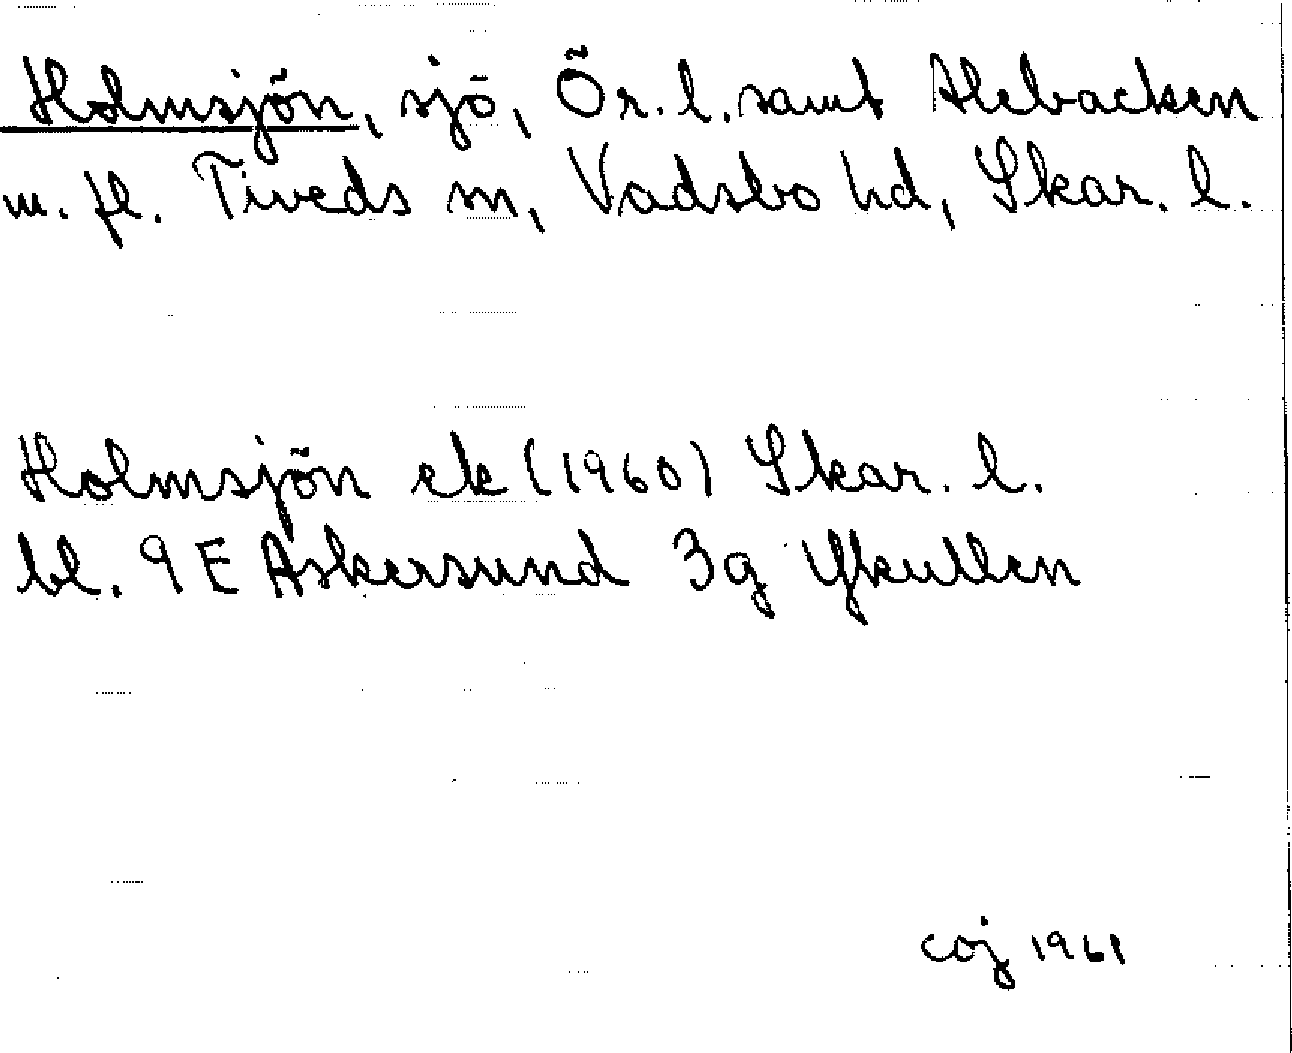 Holmsjön, sjö, Ör. l. samt Alebacken
m. fl. Tiveds sn, Vadsbo hd, Skar. l.
Holmsjön ek (1960) Skar. l.
bl. 9 E Askersund 3g Ykullen
coj 1961